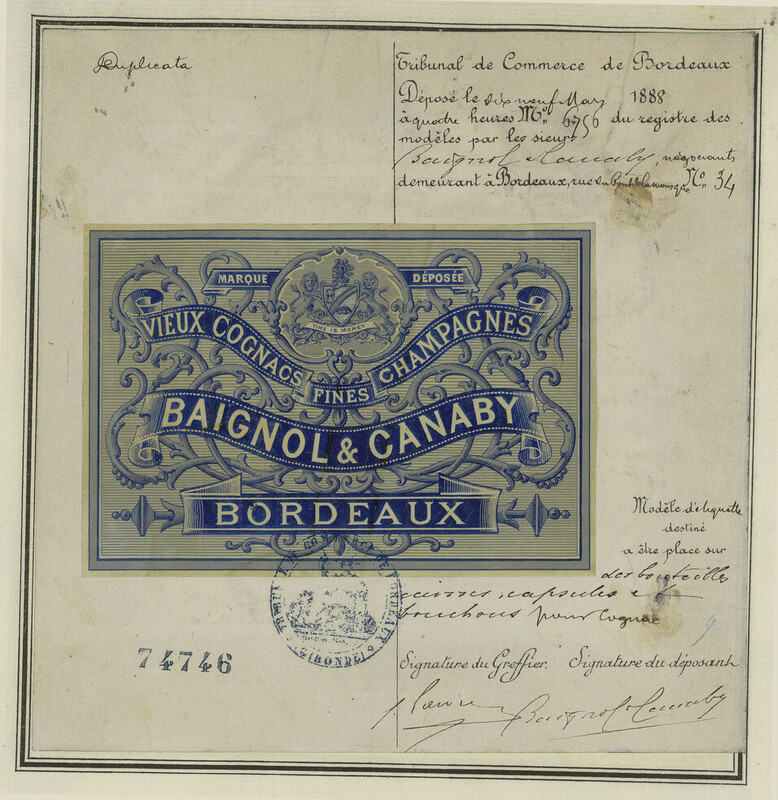 Duplicata
Tribunal de Commerce de Bordeaux
Déposé le dix neuf Mars 1888
à quatre heures No. 6756 du registre des
modèles par les sieurs
Baignol & Canaby, négociants
demeurant à Bordeaux, rue du Pont de la mousque No. 34
MARQUE DÉPOSÉE
TIME IS MONEY
VIEUX COGNACS FINES CHAMPAGNES
BAIGNOL & CANABY
BORDEAUX
Modèle d'étiquette
destiné
a être place sur
des bouteilles
caisses, capsules &
bouchons pour Cognac
TRIBUNAL DE COMMERCE DE BORDEAUX
(GIRONDE)
74746
Signature du Greffier. Signature du déposant
Baignol & Canaby